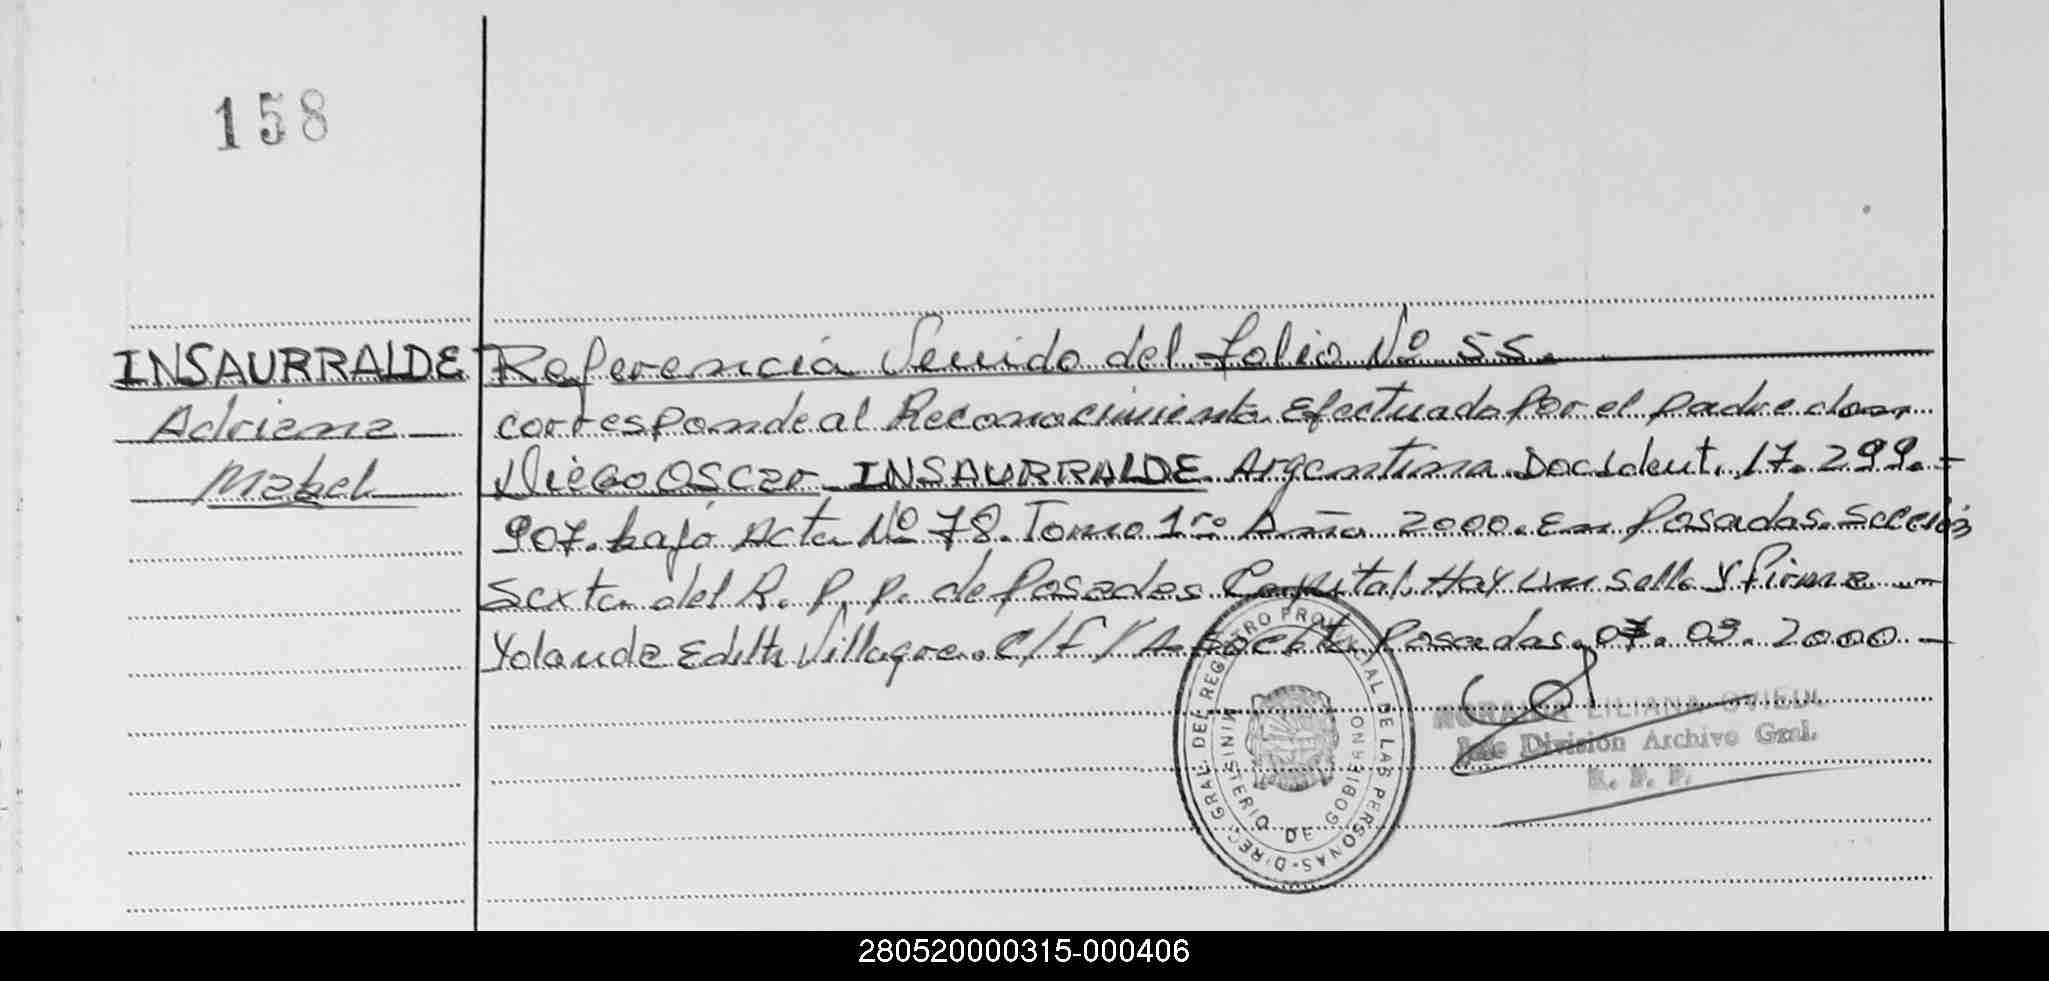 158
INSAURRALDE Referencia Venido del folio Nº 55.
Adriana correspondeal Reconocimiento Efectuado Por el padre don
Mabel Diego Oscar INSAURRALDE Argentino Doc Ident. 17.299.-
907. bajo Acta Nº 78. Tomo 1ro Año 2000. En Posadas. Sección
Sexta del R. P. P. de Posadas Capital. Hay un sello y firma
Yolanda Edith Villagra. Posadas. 07. 03. 2000
LILIANA OVIEDO
Jefe División Archivo Gral.
R. P. P.
DIREC. GRAL. DEL REGISTRO PROVINCIAL DE LAS PERSONAS
MINISTERIO DE GOBIERNO
280520000315-000406